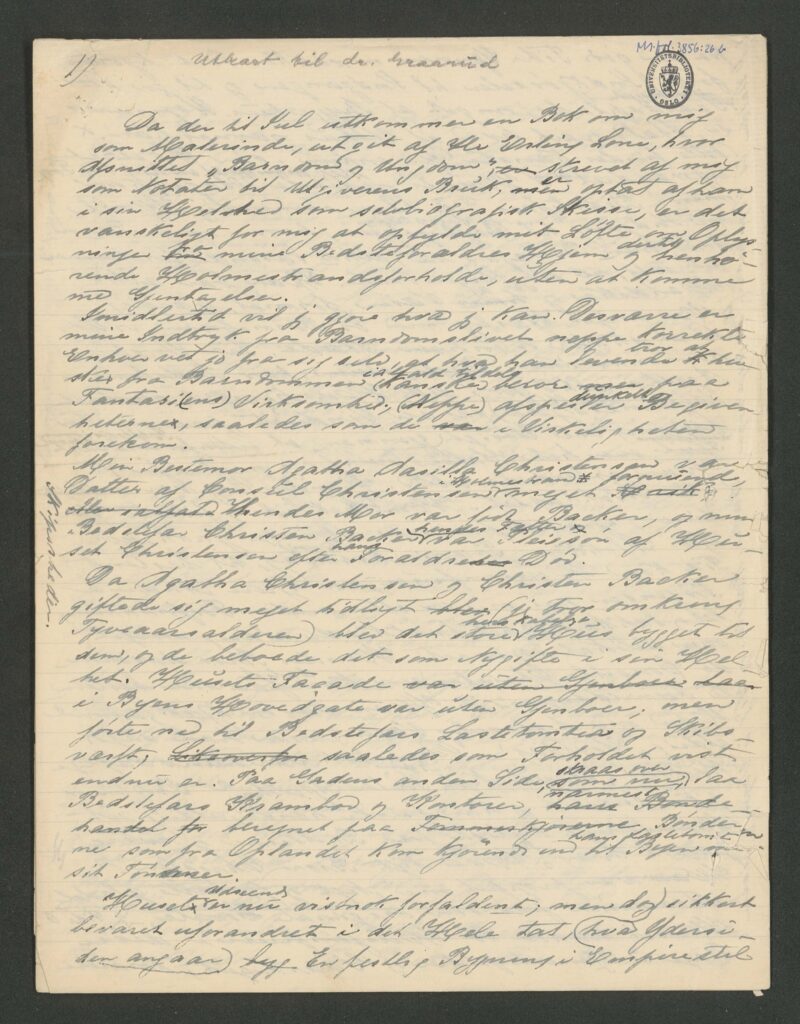 1)
Utkast til dr. Graarud
Ms. fol. 3856:26 b
UNIVERSITETSBIBLIOTEKET OSLO
Da der til Jul utkommer en Bok om mig
som Malerinde, utgit af Hr Erling Lone, hvor
Afsnittet "Barndom og Ungdom" er skrevet af mig
som Notater til Utgiverens Bruk, men optat af ham
i sin Helhed som selvbiografisk Skisse, er det
vanskeligt for mig at opfylde mit Løfte om Oplys-
ninge mine Bedsteforældres Hjem og dertil henhø-
rende Holmestrandsforholde, uten at komme
me Gjentagelser.
Imidlertid vil jeg gjøre hva jeg kan. Desværre er
mine Indtryk fra Barndomslivet neppe korrekte
Enhver vet jo fra sig selv, at hva han levende tror at hu-
sker fra Barndommen kanske beror paa
Fantasi(ens) Virksomhed. (Neppe) afspeiler dunkelt Begiven
heterne, saaledes som de var i Virkeligheten
forekom.
Min Bestemor Agatha Christensen var
Datter af Consul Christensen i Holmestrand meget formuende,
Hendes Mor var født Backer, og min
Bedstefar Christen Backer hendes Fætter
set Christensen efter hans Forældre Død.
Skipsrheder.
Da Agatha Christensen og Christen Backer
giftede sig meget tidligt blev (jeg tror omkring
Tyveaarsalderen) blev det store Hus bygget til
dem, og de beboede det som Nygifte i sin Hel-
het. Husets Façade var uten Gjenboer laa
i Byens Hovedgate var uten Gjenboer, men
førte ne til Bedstefars Lastetomter og Skibs-
værft, saaledes som Forholdet vist
endnu er. Paa Gadens anden Side, skraas over som nu, laa
Bedstefars Krambod og Kontorer, nærmest Bonde
handel for beregnet paa Tømmerkjørerne Bønder-
ne som fra Oplandet kom kjørende ind til Byen me
sit Tømmer.
Husets Utseende er nu vistnok forfaldent; men dog sikkert
bevaret uforandret i det Hele tat, (hva Ydersi-
den angaar) byg En festlig Bygning i Empirestil